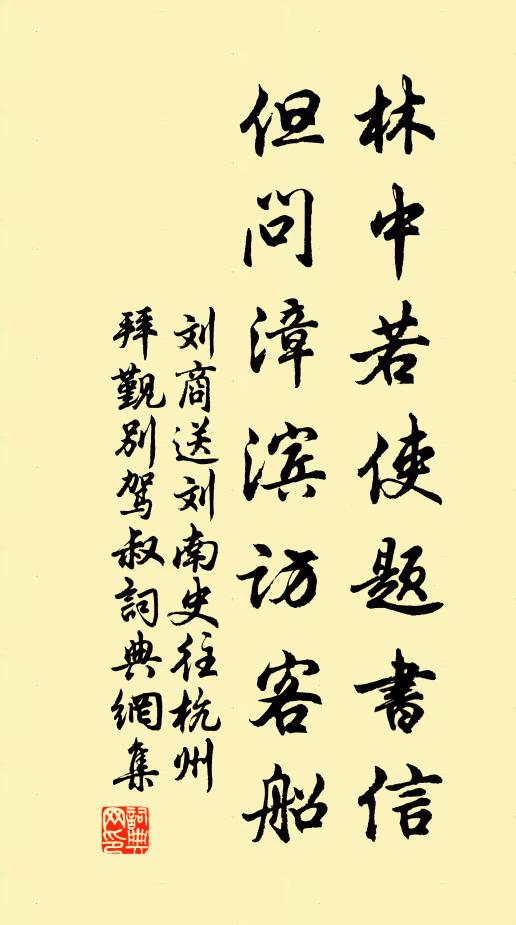 林中若使题書信
但问漳滨访客船
刘商送刘南史往杭州
拜觐别驾叔詞典網集
詞典網印